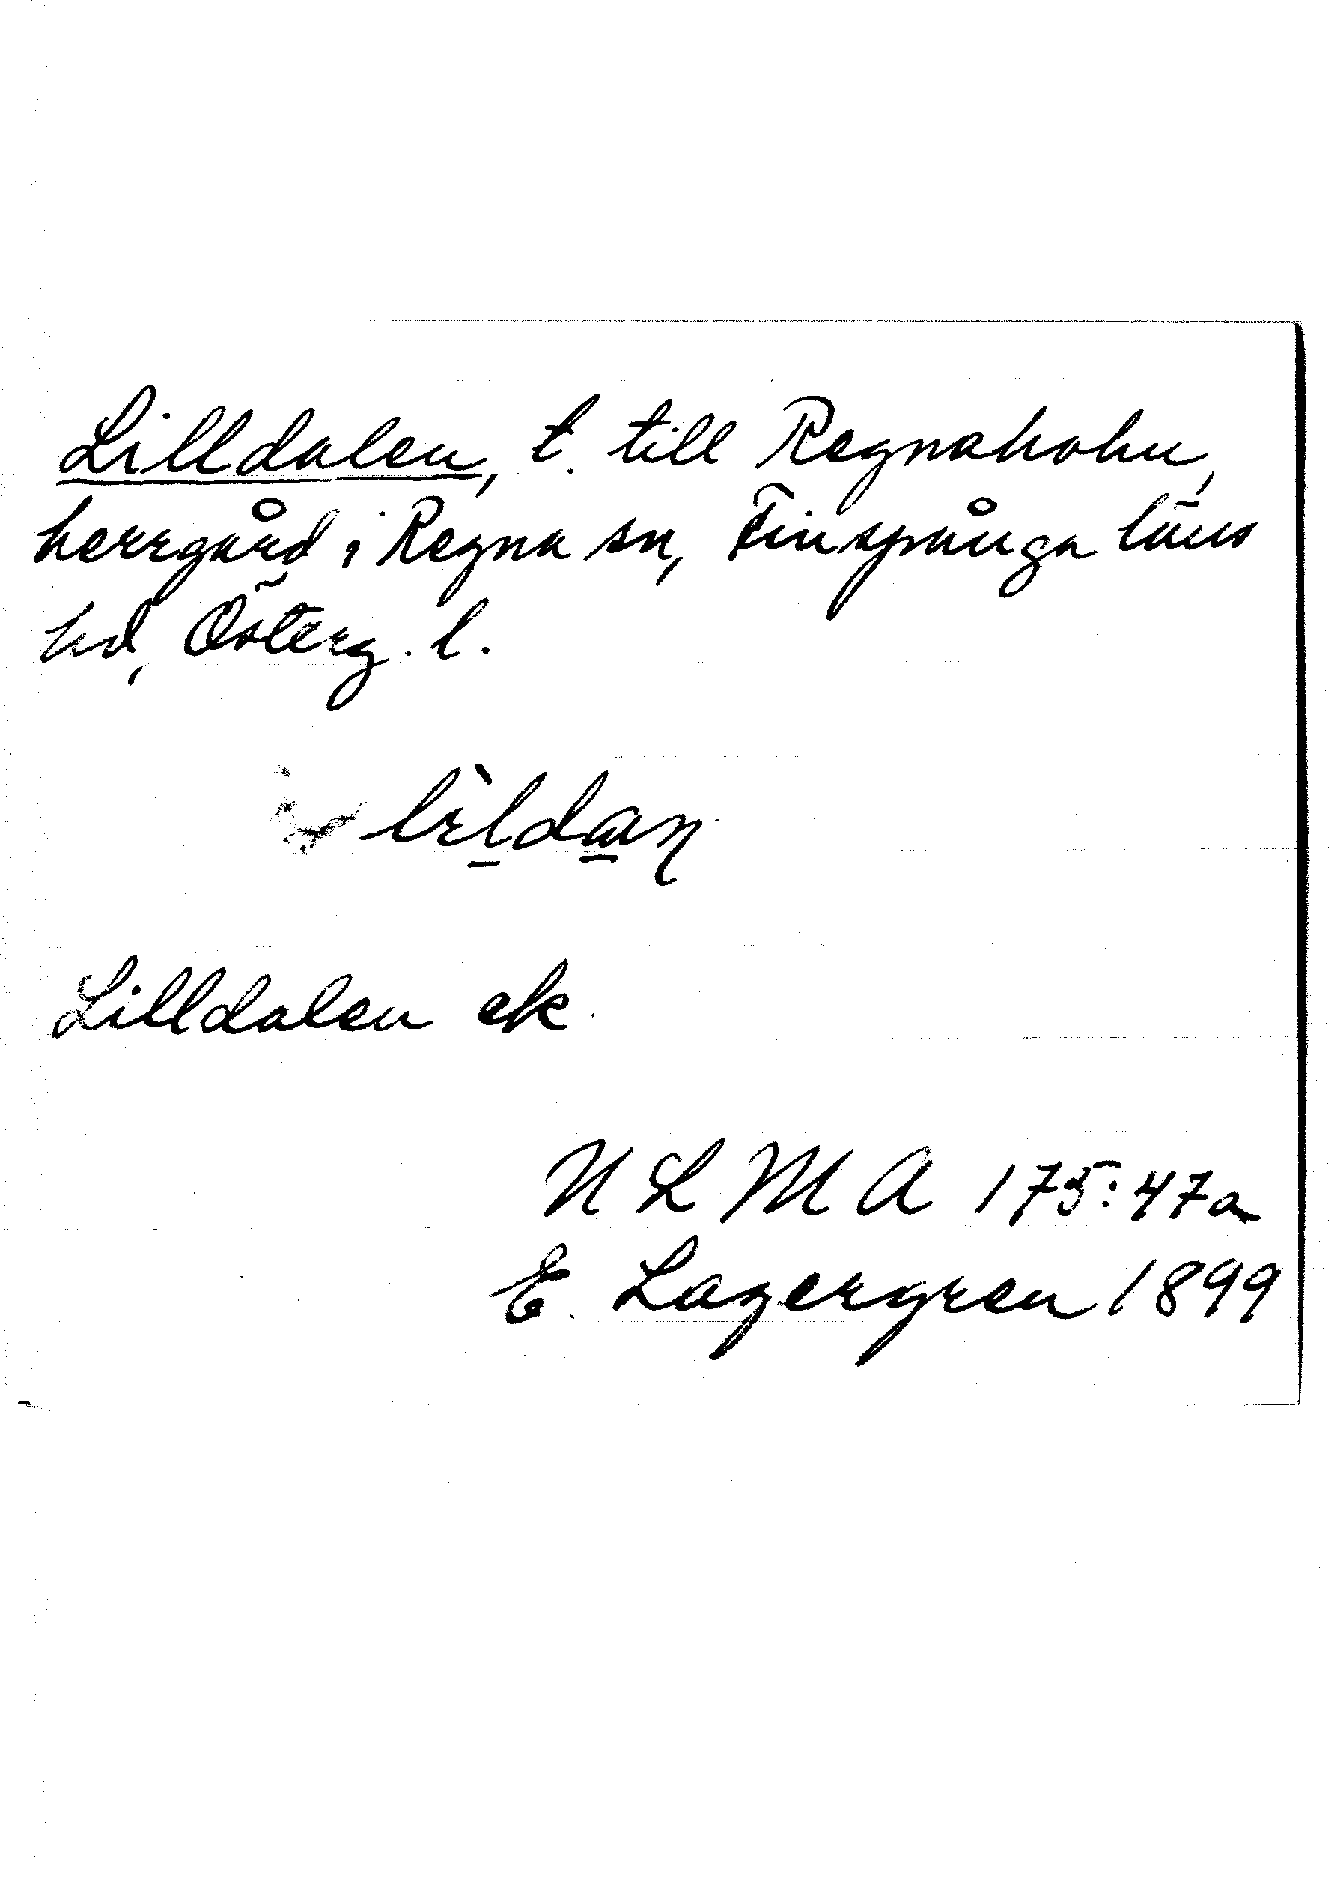 Lilldalen, t. till Regnaholm,
herrgård i Regna sn, Finspånga läns
hd, Österg. l.
Lilldalen ek.
N L M A 175:47a
E. Lagergren 1899